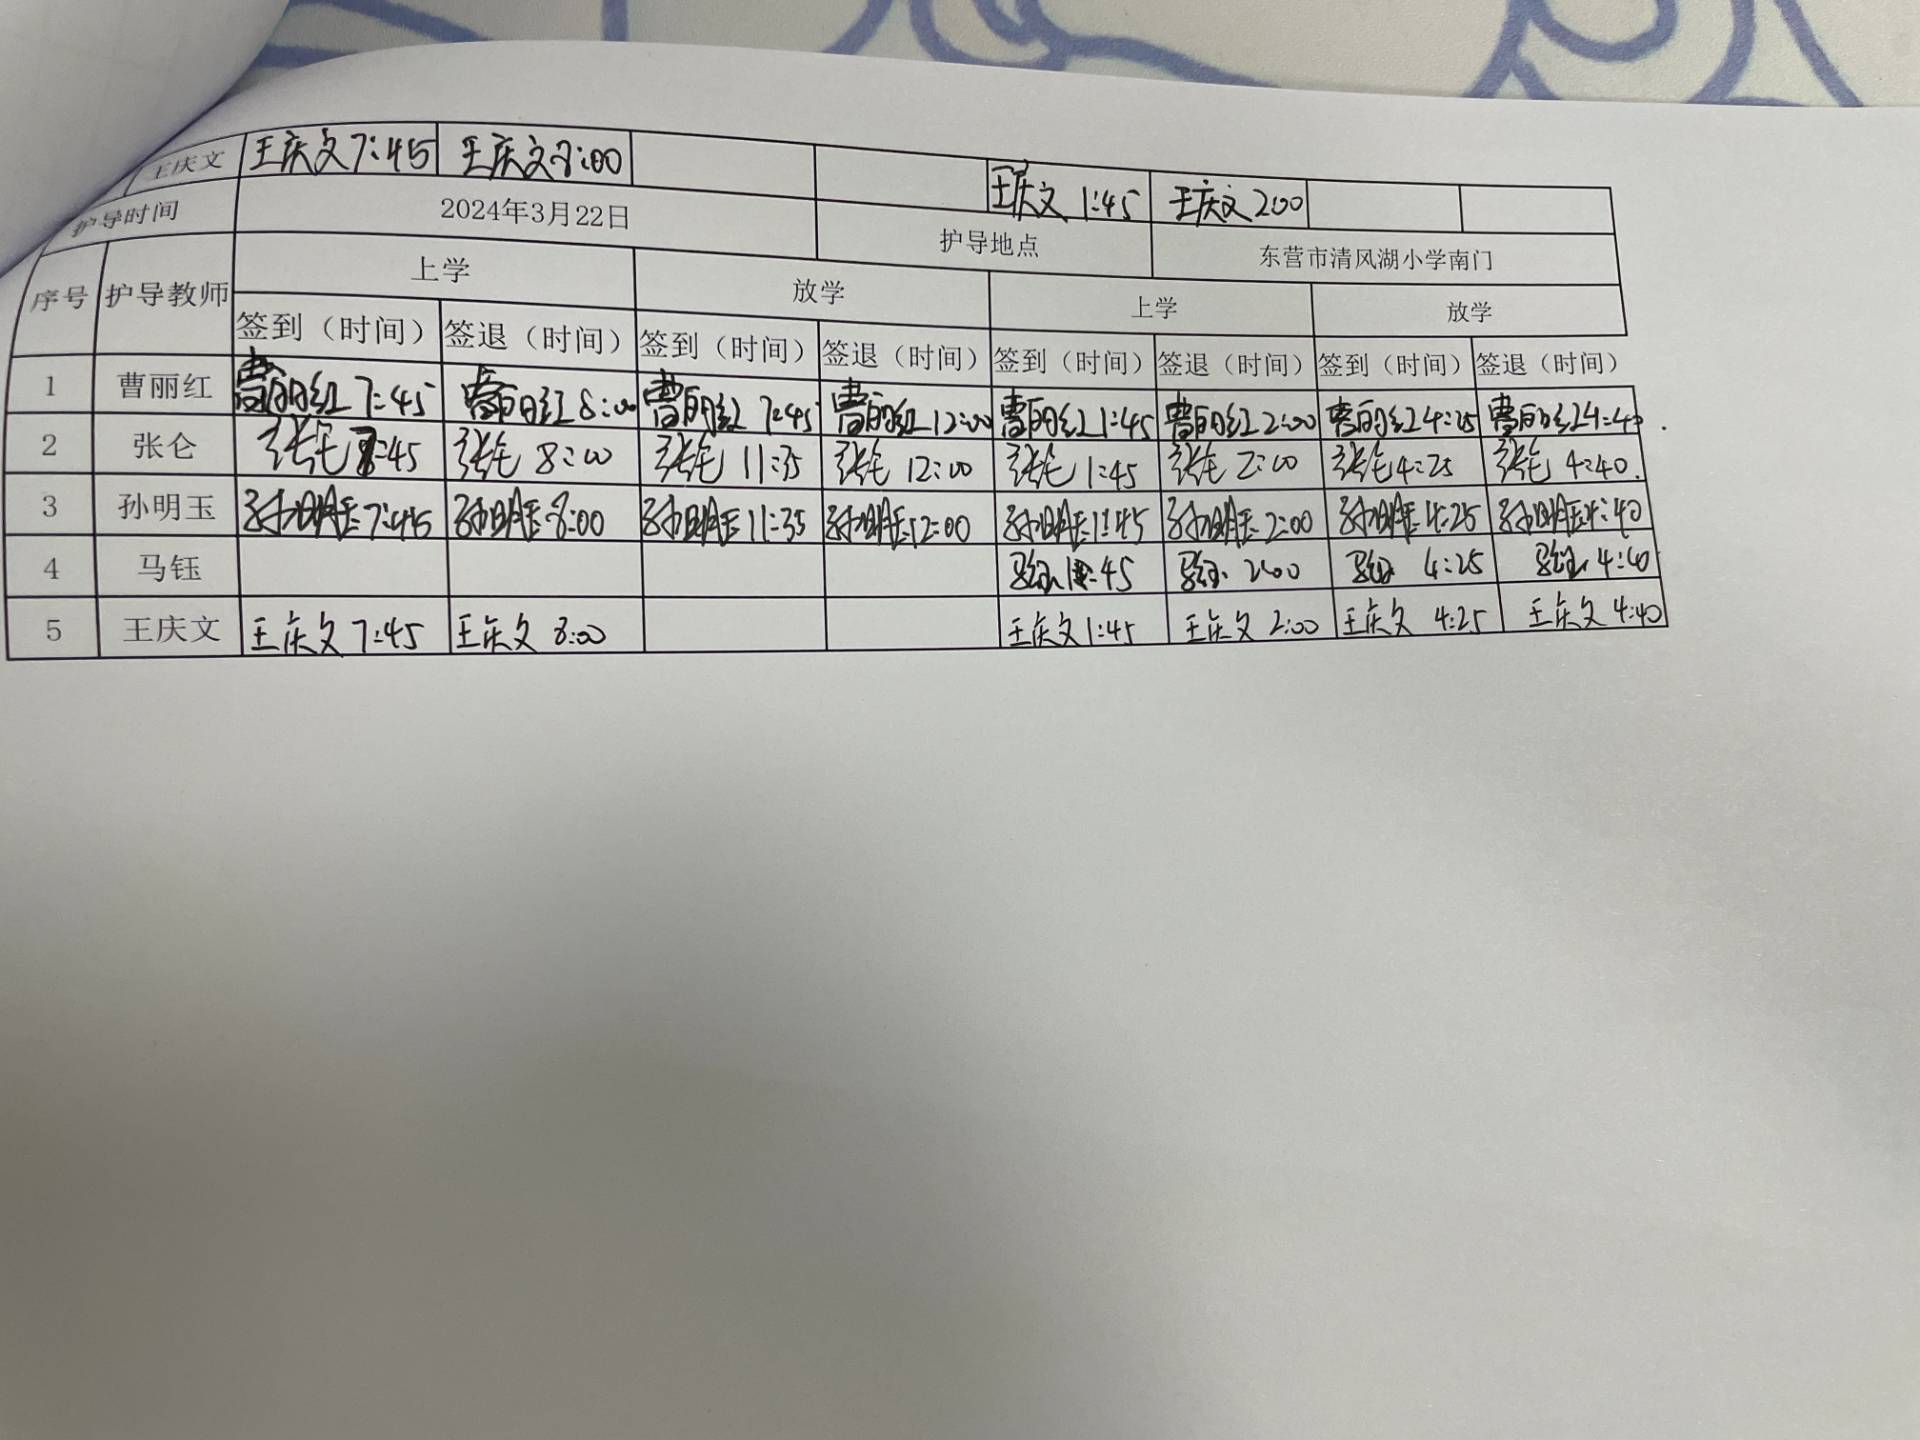 王庆文 王庆文7:45 王庆文8:00 王庆文 1:45 王庆文2:00
护导时间 2024年3月22日 护导地点 东营市清风湖小学南门
序号 护导教师 上学 放学 上学 放学
签到（时间） 签退（时间） 签到（时间） 签退（时间） 签到（时间） 签退（时间） 签到（时间） 签退（时间）
1 曹丽红 曹丽红 7:45 曹丽红 8:00 曹丽红 7:45 曹丽红 12:00 曹丽红 1:45 曹丽红 2:00 曹丽红 4:25 曹丽红 4:40.
2 张仑 张仑 7:45 张仑 8:00 张仑 11:35 张仑 12:00 张仑 1:45 张仑 2:00 张仑 4:25 张仑 4:40.
3 孙明玉 孙明玉 7:45 孙明玉 8:00 孙明玉 11:35 孙明玉 12:00 孙明玉 1:45 孙明玉 2:00 孙明玉 4:25 孙明玉 4:40
4 马钰 马钰 1:45 马钰 2:00 马钰 4:25 马钰 4:40
5 王庆文 王庆文 7:45 王庆文 8:00 王庆文 1:45 王庆文 2:00 王庆文 4:25 王庆文 4:40